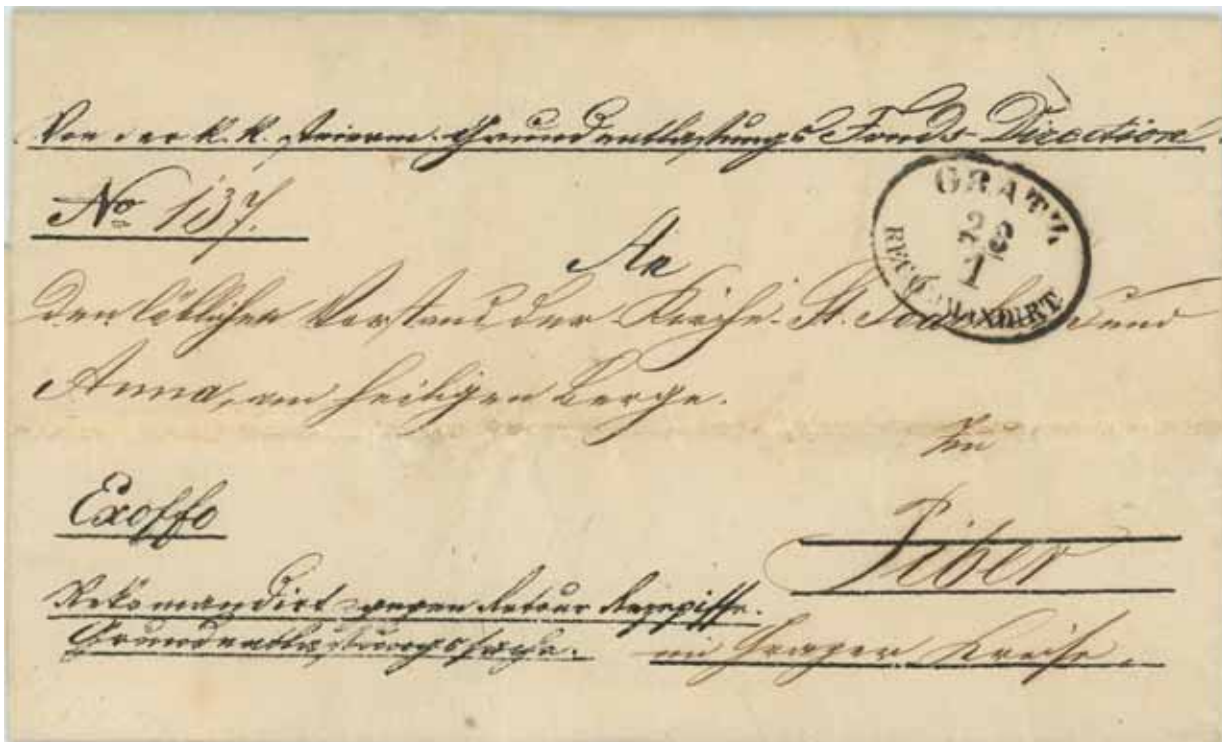 Von der k. k. steierm. Grundentlastungs Fonds-Direction.
No 137.
GRATZ
26
1
RECOMMANDIRT
An
den löblichen Vorstand der Kirche St. und
Anna, am heiligen Berge.
in
Piber
Exoffo
Rekomandirt gegen Retour Rezepisse.
Grundentlastungssache.
im Grazer Kreise.